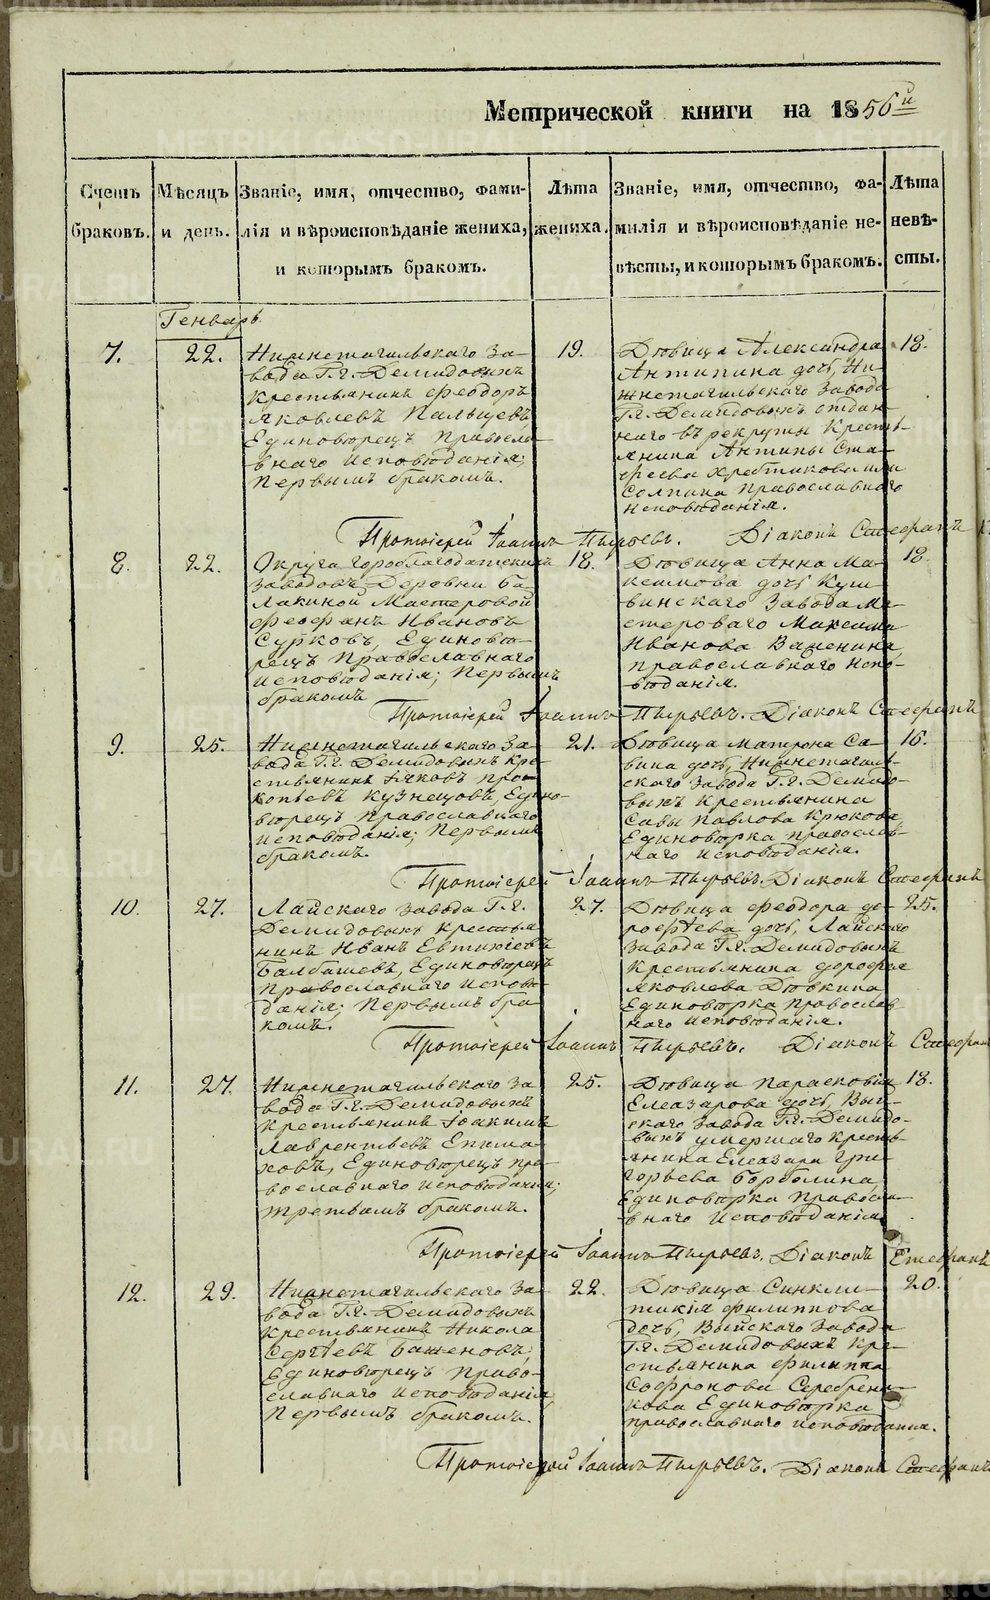 Метрической книги на 1856й
Счетъ браковъ.
Мѣсяцъ и день.
Званіе, имя, отчество, фами-
лія и вѣроисповѣданіе жениха,
и которымъ бракомъ.
Лѣта жениха.
Званіе, имя, отчество, фа-
милія и вѣроисповѣданіе не-
вѣсты, и которымъ бракомъ.
Лѣта невѣ-
сты.
Генварь
7.
22.
Нижнетагильскаго За-
вода Г.г. Демидовыхъ
крестьянинъ Феодоръ
Яковлевъ Пальцевъ,
Единовѣрецъ Правосла-
внаго исповѣданія;
Первымъ бракомъ.
19.
Дѣвица Александра
Антипина дочь, Ни-
жнетагильскаго Завода
Г.г. Демидовыхъ отдан-
наго въ рекруты Кресть-
янина Антипы
или
Православнаго
исповѣданія.
18.
Протоіерей Іоаннъ Пырьевъ. Діаконъ Стефанъ
8.
22.
Округа Гороблагодатскихъ
Заводовъ Деревни Ба-
лакиной Мастеровой
Феофанъ Ивановъ
Сурковъ, Единовѣ-
рецъ Православнаго
исповѣданія; Первымъ
бракомъ
18.
Дѣвица Анна Ма-
ксимова дочь Куш-
винскаго Завода Ма-
стероваго Максима
Иванова Важенина,
православнаго испо-
вѣданія.
18.
Протоіерей Іоаннъ Пырьевъ. Діаконъ Стефанъ
9.
25.
Нижнетагильскаго За-
вода Г.г. Демидовыхъ Кре-
стьянинъ Іяковъ Про-
копьевъ Кузнецовъ, Едино-
вѣрецъ Православнаго
исповѣданія; Первымъ
бракомъ.
21.
Дѣвица Матрона Са-
вина дочь, Нижнетагиль-
скаго Завода Г.г. Демидо-
выхъ Крестьянина
Савы Павлова Крюкова,
Единовѣрка православ-
наго исповѣданія.
16.
Протоіерей Іоаннъ Пырьевъ. Діаконъ Стефанъ
10.
27.
Лайскаго Завода Г.г.
Демидовыхъ Крестья-
нинъ Иванъ Евтихіевъ
Балбашевъ, Единовѣрецъ
Православнаго исповѣ-
данія; Первымъ бра-
комъ.
27.
Дѣвица Феодора До-
рофѣева дочь, Лайскаго
Завода Г.г. Демидовыхъ
Крестьянина Дорофея
Яковлева Дѣвкина
Единовѣрка Православ-
наго исповѣданія.
25.
Протоіерей Іоаннъ Пырьевъ. Діаконъ Стефанъ
11.
27.
Нижнетагильскаго За-
вода Г.г. Демидовыхъ
Крестьянинъ Іоакимъ
Лаврентьевъ Епима-
ховъ, Единовѣрецъ пра-
вославнаго исповѣданія;
третьимъ бракомъ.
25.
Дѣвица Парасковія
Елеазарова дочь, Вый-
скаго Завода Г.г. Демидо-
выхъ умершаго Кресть-
янина Елеазара Гри-
горьева Борболина,
Единовѣрка Правосла-
внаго исповѣданія
18.
Протоіерей Іоаннъ Пырьевъ. Діаконъ Стефанъ
12.
29.
Нижнетагильскаго За-
вода Г.г. Демидовыхъ
Крестьянинъ Никола
Сергѣевъ Баженовъ,
Единовѣрецъ Право-
славнаго исповѣданія,
Первымъ бракомъ.
22.
Дѣвица Синкли-
тикія Филиппова
дочь, Выйскаго Завода
Г.г. Демидовыхъ Кре-
стьянина Филиппа
Софронова Серебрени-
кова Единовѣрка
православнаго исповѣданія.
20.
Протоіерей Іоаннъ Пырьевъ. Діаконъ Стефанъ
METRIKI.GASO-URAL.RU